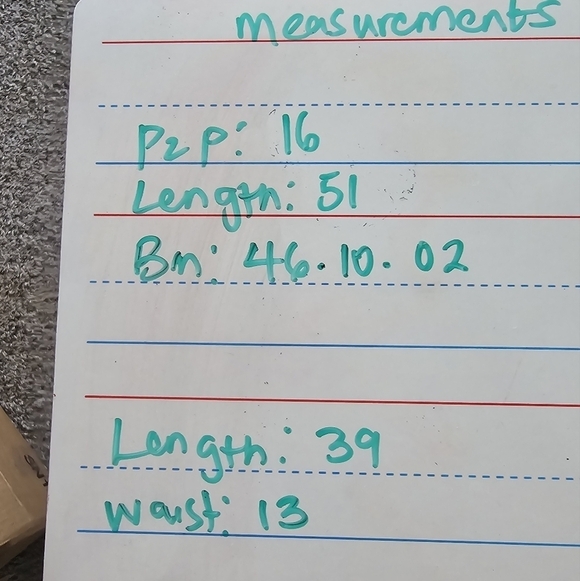 measurements
P2P: 16
Length: 51
Bn: 46.10.02
Length: 39
Waist: 13